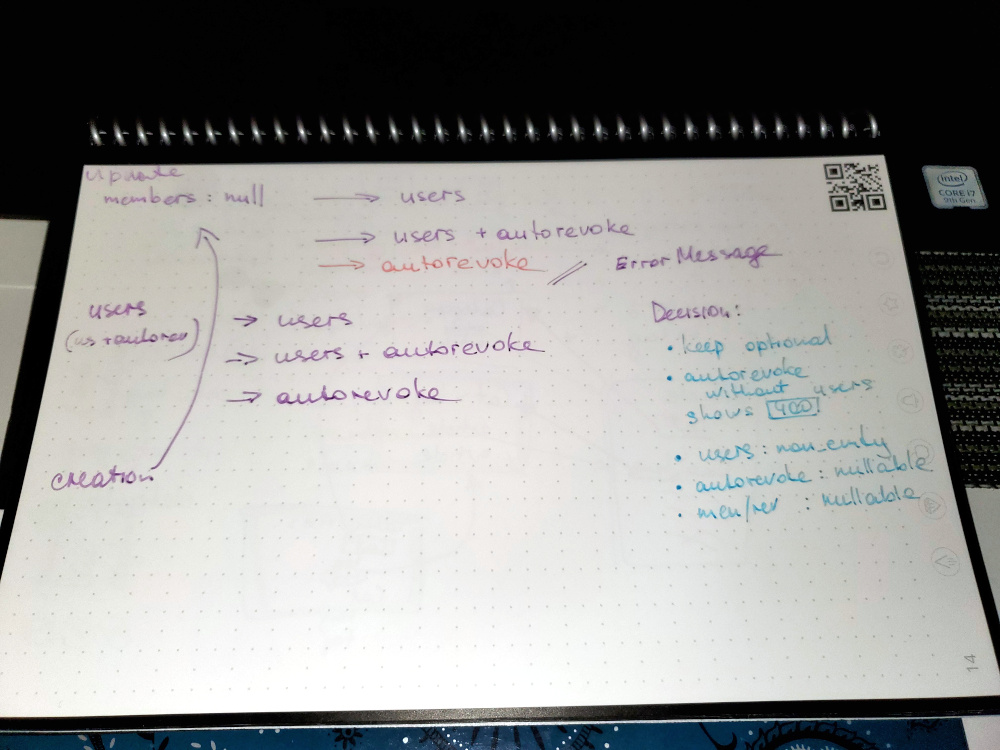 update
members : null → users
→ users + autorevoke
→ autorevoke // Error Message
users
(us + autorev)
→ users
→ users + autorevoke
→ autorevoke
creation
Decision:
• keep optional
• autorevoke
without users
shows 400
• users : non_emty
• autorevoke : nullable
• mem/rev : nullable
14
intel
CORE i7
9th Gen